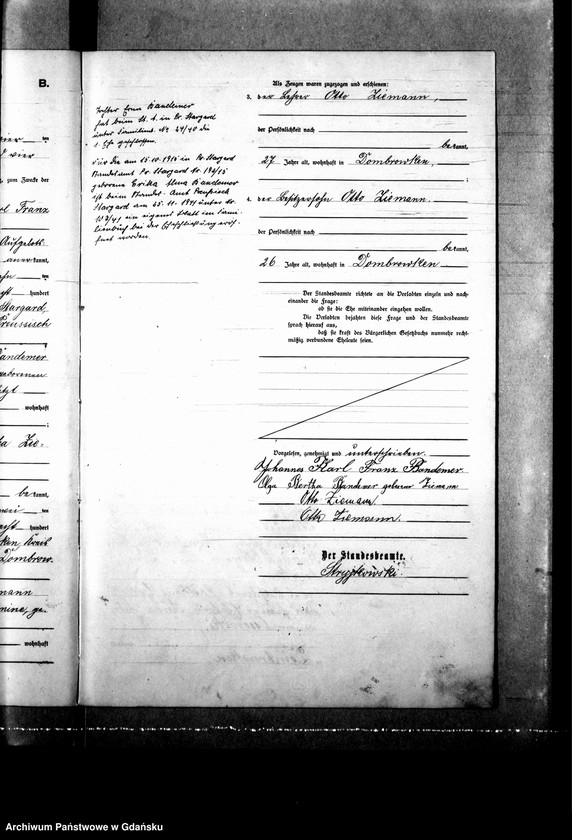 B.
vier
zum Zwecke der
Franz
Aufgebots
anerkannt,
ten
hundert
Stargard,
Preussisch
Bandemer
geborenen
wohnhaft
;
Zie-
be kannt,
hundert
Dombrow-
mann
ge-
wohnhaft
Tochter Erna Bandemer
hat beim St. A. in Pr. Stargard
unter Familienb. No 24/40 die
1. Ehe geschlossen.
Für die am 15.10.1915 in Pr. Stargard
Standesamt Pr. Stargard
geborene Erika Bandemer
ist beim Standes-Amt Preußisch
Stargard am 25.11.1941 unter Nr.
ein eigenes Blatt im Fami-
lienbuch bei der Eheschließung eröff-
net worden.
Als Zeugen waren zugezogen und erschienen:
3. der Lehrer Otto Ziemann,
der Persönlichkeit nach
be kannt,
27 Jahre alt, wohnhaft in Dombrowken,
;
4. der Besitzersohn Otto Ziemann.
der Persönlichkeit nach
be kannt,
26 Jahre alt, wohnhaft in Dombrowken
Der Standesbeamte richtete an die Verlobten einzeln und nach-
einander die Frage:
ob sie die Ehe miteinander eingehen wollen.
Die Verlobten bejahten diese Frage und der Standesbeamte
sprach hierauf aus,
daß sie kraft des Bürgerlichen Gesetzbuchs nunmehr recht-
mäßig verbundene Eheleute seien.
Vorgelesen, genehmigt und unterschrieben.
Johannes Karl Franz Bandemer
Olga Bertha Bandemer geborene Ziemann
Otto Ziemann.
Otto Ziemann.
Der Standesbeamte.
Stryjkowski.
Archiwum Państwowe w Gdańsku